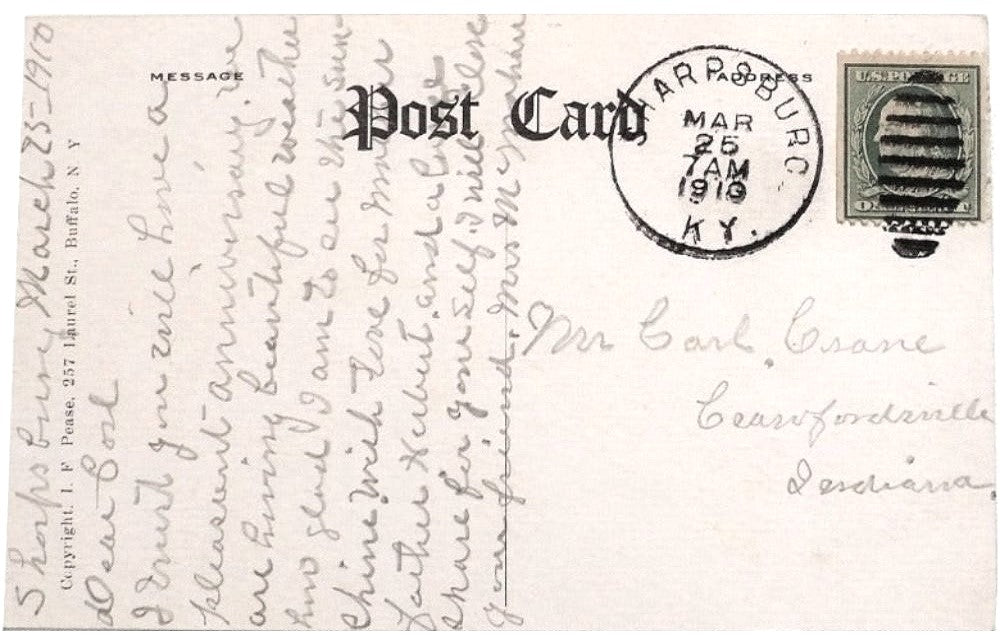 MESSAGE
ADDRESS
Post Card
SHARPSBURG
MAR
25
7 AM
1910
KY.
U.S. POSTAGE
Copyright. I. F Pease, 257 Laurel St., Buffalo, N Y
Sharpsburg March 25-1910
Dear Carl
I trust you will have a
pleasent anniversary, we
are having beautiful weather
how glad I am to see the sun
shine. With love for mother
father Herbert. and a large
share for your self. I will close
your friend. Mrs
Mr Carl. Crane
Crawfordsville
Indiana.